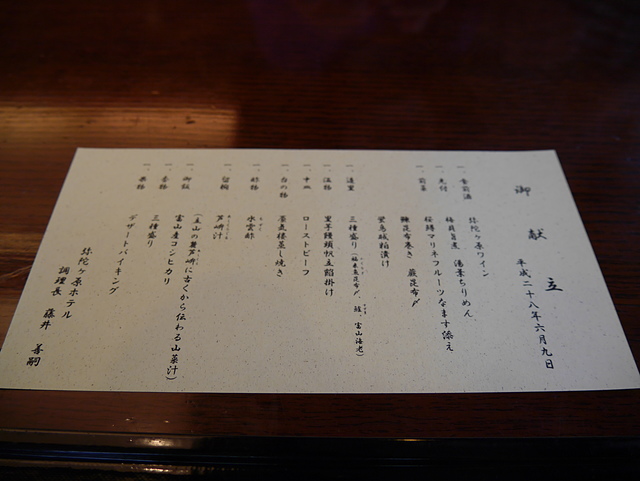 御献立
平成二十八年六月九日
一、食前酒 弥陀ヶ原ワイン
一、先付 梅貝旨煮 湯葉ちりめん
桜鱒マリネフルーツなます添え
一、前菜 鰊昆布巻き 蕨昆布〆
蛍烏賊粕漬け
一、造里 三種盛り
一、温物 里芋饅頭帆立餡掛け
一、中皿 ローストビーフ
一、台の物 蒸し焼き
一、酢物 水雲酢
一、留椀 芦峅汁
(立山の麓芦峅に古くから伝わる山菜汁)
一、御飯 富山産コシヒカリ
一、香物 三種盛り
一、果物 デザートバイキング
弥陀ヶ原ホテル
調理長 藤井 善嗣